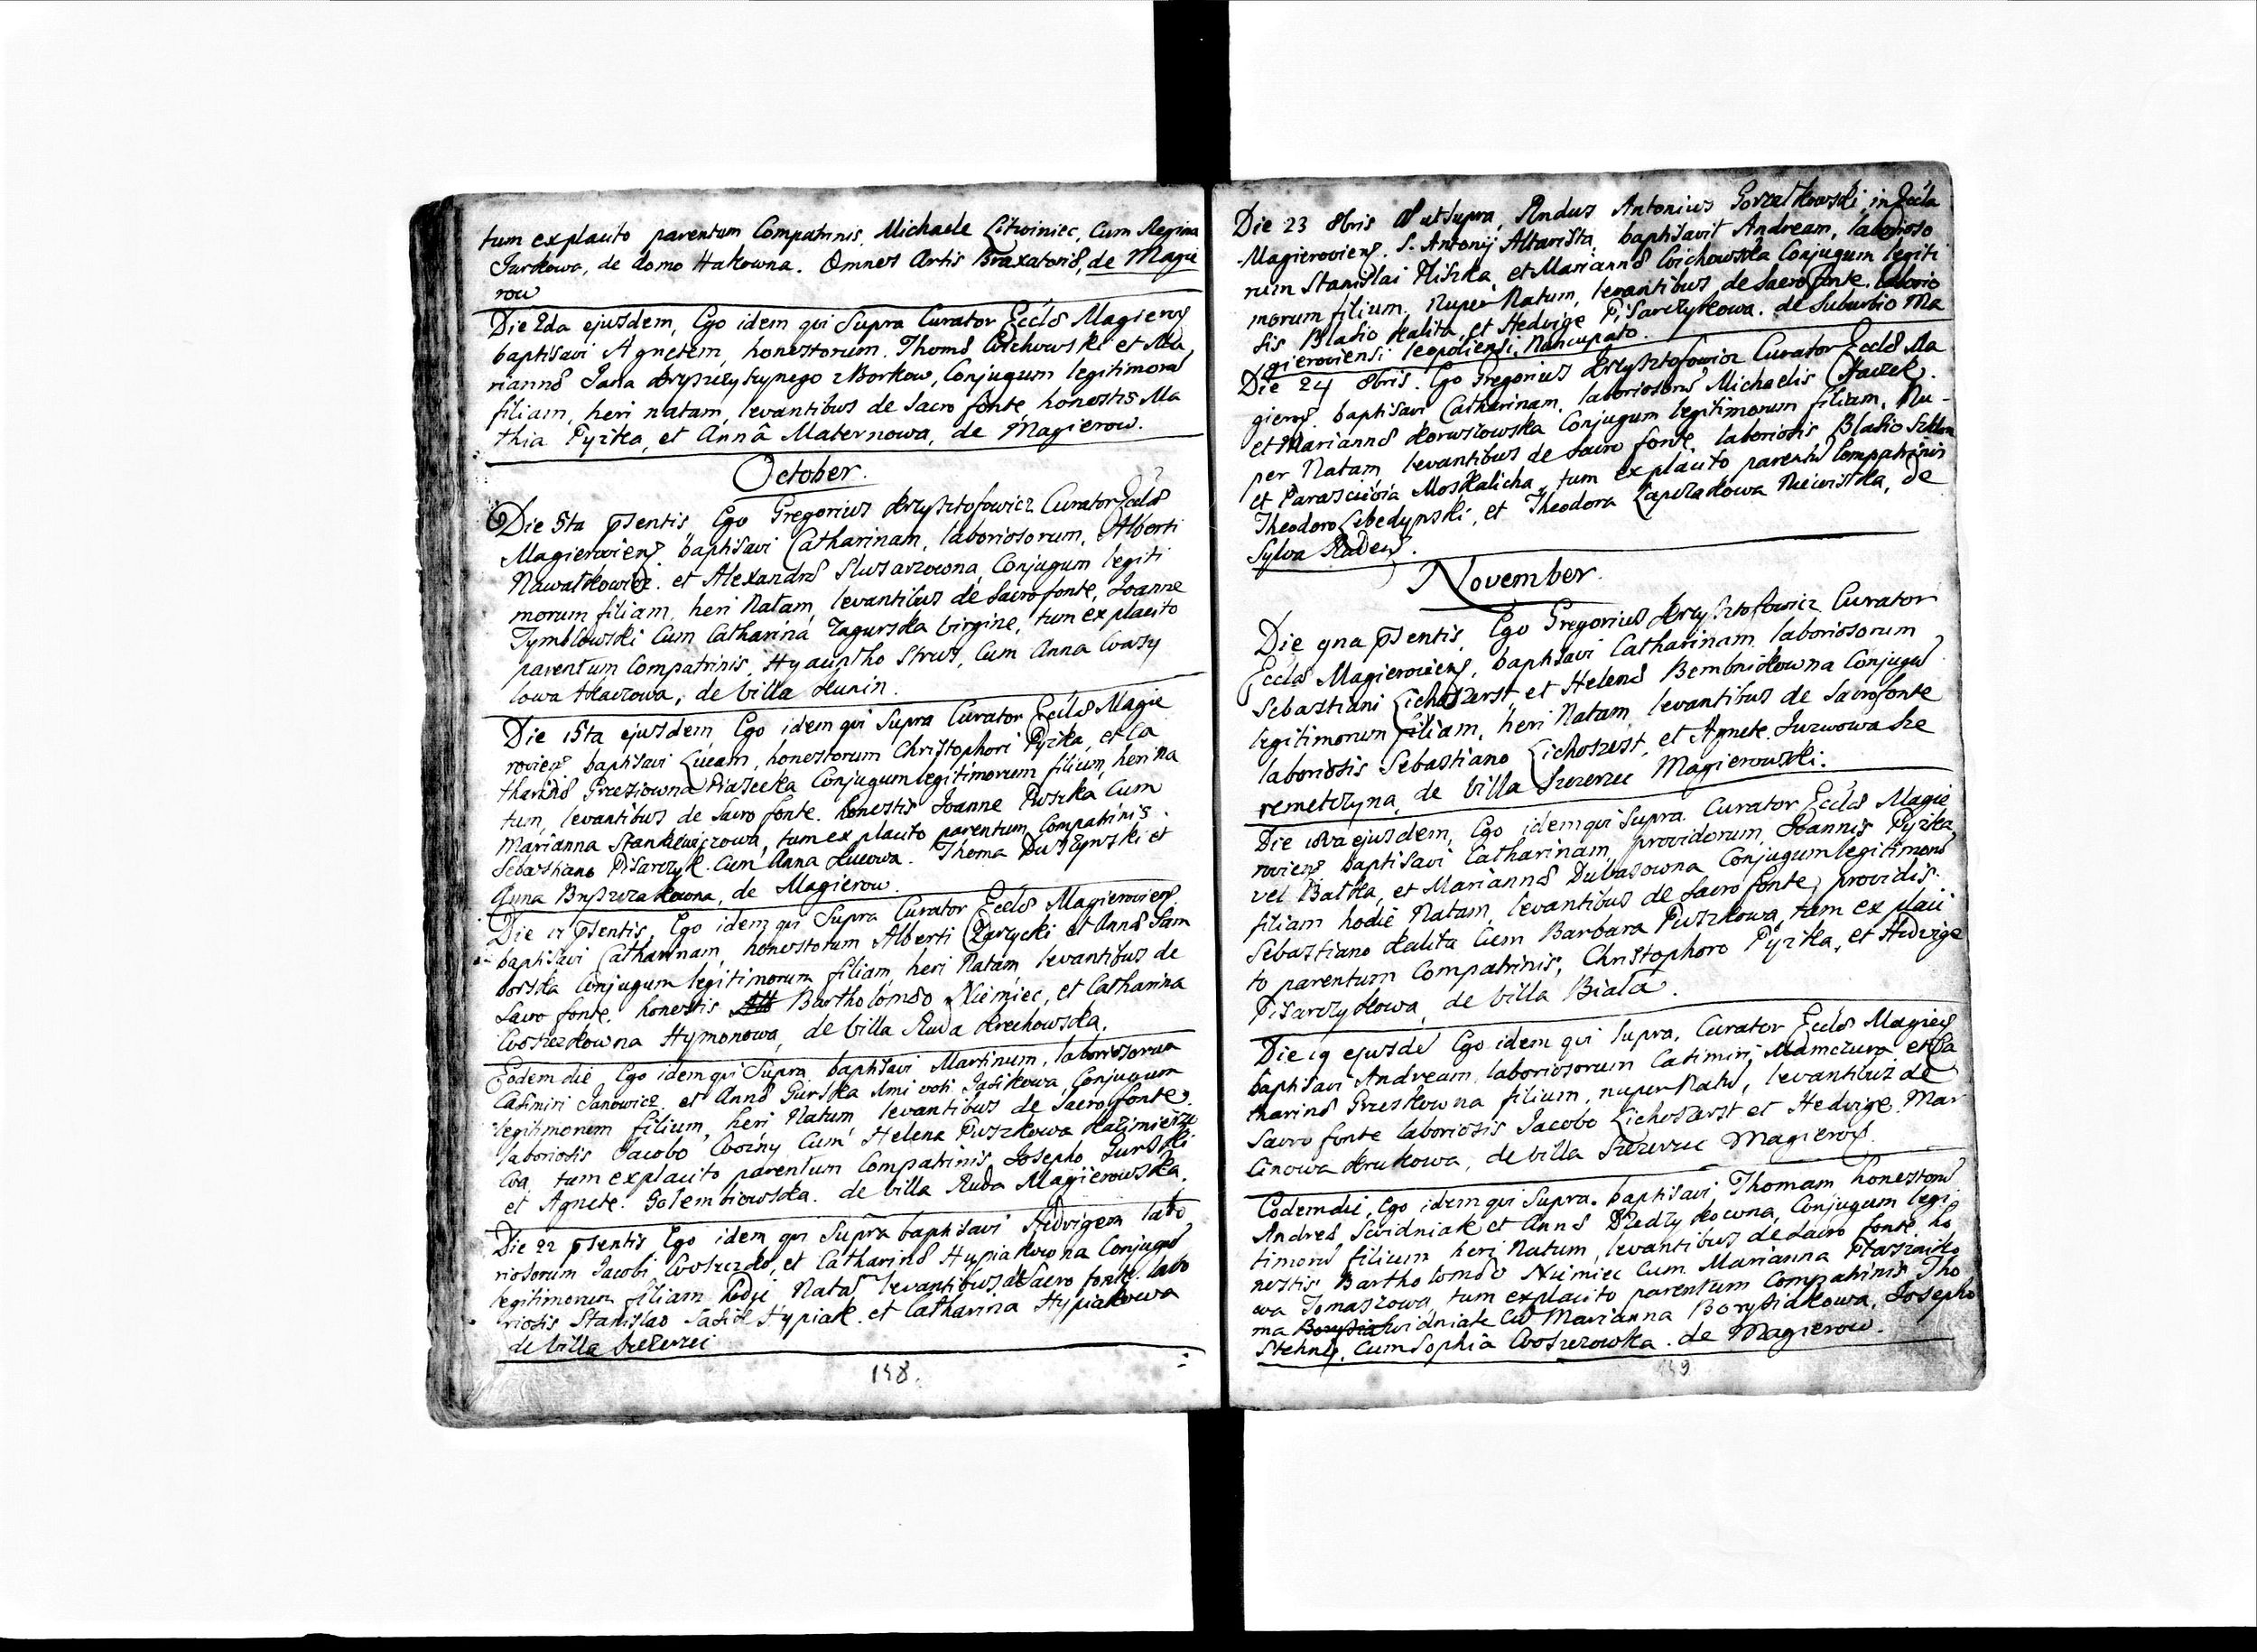 tum ex placito parentum Compatrinis, Michaele Litwiniec, Cum Regina
Jurkowa, de domo Hakowna. Omnes Artis Braxatoris, de Magie
row
Die 2da ejusdem, Ego idem qui Supra Curator Eccls Magierovs
baptisavi Agnetem, honestorum. Thoms Woichowski et Ma
rianns Jana Krysztynego z Borkow, Conjugum legitimorum
filiam, heri natam, levantibus de Sacro fonte, honestis Ma
thia Pyzka, et Annâ Maternowa, de Magierow.
October.
Die 5ta psentis, Ego Gregorius Krzysztofowicz Curator Eccls
Magieroviens baptisavi Catharinam, laboriosorum, Alberti
Nawalkowicz. et Alexandrs Slusarzowna, Conjugum legiti
morum filiam, heri Natam, levantibus de Sacro fonte, Joanne
Tymblowski Cum Catharina Zagurska Virgine, tum ex placito
parentum Compatrinis, Hyacintho Strus, Cum Anna Wasy
lowa Tkaczowa, de Villa Kunin.
Die 15ta ejusdem, Ego idem qui Supra Curator Eccls Magie
roviens baptisavi Lucam, honestorum Christophori Pyzka, et Ca
tharins Grzesiowna Piasecka Conjugum legitimorum filium, heri na
tum, levantibus de Sacro fonte. honestis Joanne Puszka Cum
Marianna Stankiewiczowa, tum ex placito parentum Compatrinis.
Sebastiano Pisarczyk. Cum Anna Lucowa. Thoma Duszynski et
Anna Bryszczakowna, de Magierow.
Die 17 psentis, Ego idem qui Supra Curator Eccls Magieroviens
baptisavi Catharinam, honestorum Alberti Zarzycki et Anns Sam
borska Conjugum legitimorum filiam, heri Natam, levantibus de
Sacro fonte. honestis Bartholomso Niemiec, et Catharina
Woszczkowna Hymonowa, de Villa Ruda Krechowska.
Eodem die, Ego idem qui Supra baptisavi Martinum, laboriosorum
Casimiri Janowicz, et Anns Gurska 1mi voti Jasikowa, Conjugum
legitimorum filium, heri Natum, levantibus de Sacro fonte.
laboriosis Jacobo Wozny Cum Helena Puszkowa Kazimierzo
wa, tum ex placito parentum Compatrinis Josepho Gurski
et Agnete. Golembiowska. de Villa Ruda Magierowska.
Die 22 psentis Ego idem qui Supra baptisavi Hedvigem labo
riosorum Jacobi Woszczko, et Catharins Hypiakowna Conjugum
legitimorum filiam hodie Natam levantibus de Sacro fonte. labo
riosis Stanislao Hypiak. et Catharina Hypiakowa
de Villa Szczerzec
148.
Die 23 8bris ut Supra, Rndus Antonius Gorzalkowski, in Eccla
Magieroviens. S. Antonij Altarista, baptisavit Andream, laborioso
rum Stanislai Kliszka, et Marianns Woichowska Conjugum legiti
morum filium, Nuper Natum, levantibus de Sacro fonte. laborio
sis Blasio Kalita, et Hedvige Pisarczykowa. de Suburbio Ma
gieroviensi leopoliensi Nuncupato.
Die 24 8bris. Ego Gregorius Krzysztofowicz Curator Eccls Ma
gierovs. baptisavi Catharinam, laboriosorum Michaelis Haczek.
et Marianns Korwszowska Conjugum legitimorum filiam, Nu-
per Natam, levantibus de Sacro fonte, laboriosis Blasio Szklan
et Parascievia Moskalicha, tum ex placito parentum Compatrinis
Theodoro Lebedynski, et Theodora Lapczakowa Niewistka, de
Sylva Radens.
November.
Die 9na psentis, Ego Gregorius Krzysztofowicz Curator
Eccls Magieroviens, baptisavi Catharinam laboriosorum
Sebastiani Lichoszerst, et Helens Bembnikowna Conjugum
legitimorum filiam, heri Natam, levantibus de Sacro fonte
laboriosis Sebastiano Lichoszest, et Agnete Jurwowa Sze
remetczyna, de Villa Szczerzec Magierowski.
Die 18va ejusdem, Ego idem qui Supra Curator Eccls Magie
roviens baptisavi Catharinam, providorum, Joannis Pyzka,
vel Balka, et Marianns Dubasowna Conjugum legitimorum
filiam hodie Natam, levantibus de Sacro fonte, providis.
Sebastiano Kalita Cum Barbara Puszkowa, tum ex placi
to parentum Compatrinis, Christophoro Pyzka, et Hedvige
Pisarczykowa, de Villa Biala.
Die 19 ejusdem Ego idem qui Supra, Curator Eccls Magierovs
baptisavi Andream, laboriosorum Casimiri Mamczura et Ca
tharins Greskowna filium, nuper Natum, levantibus de
Sacro fonte laboriosis Jacobo Lichoszerst et Hedvige Mar
cinowa Krukowa, de Villa Szczerzec Magierovs.
Eodem die, Ego idem qui Supra. baptisavi Thomam honestorum
Andres Swidniak et Anns Dziedzykowna, Conjugum legi
timorum filium heri Natum, levantibus de Sacro fonte, ho
nestis Bartholomso Niemiec Cum Marianna Ptaszniko
wa Tomaszowa, tum ex placito parentum Compatrinis Tho
ma Swidniak Cum Marianna Borysiakowa, Josepho
Stehnij, Cum Sophiâ Woszczowska. de Magierow.
149